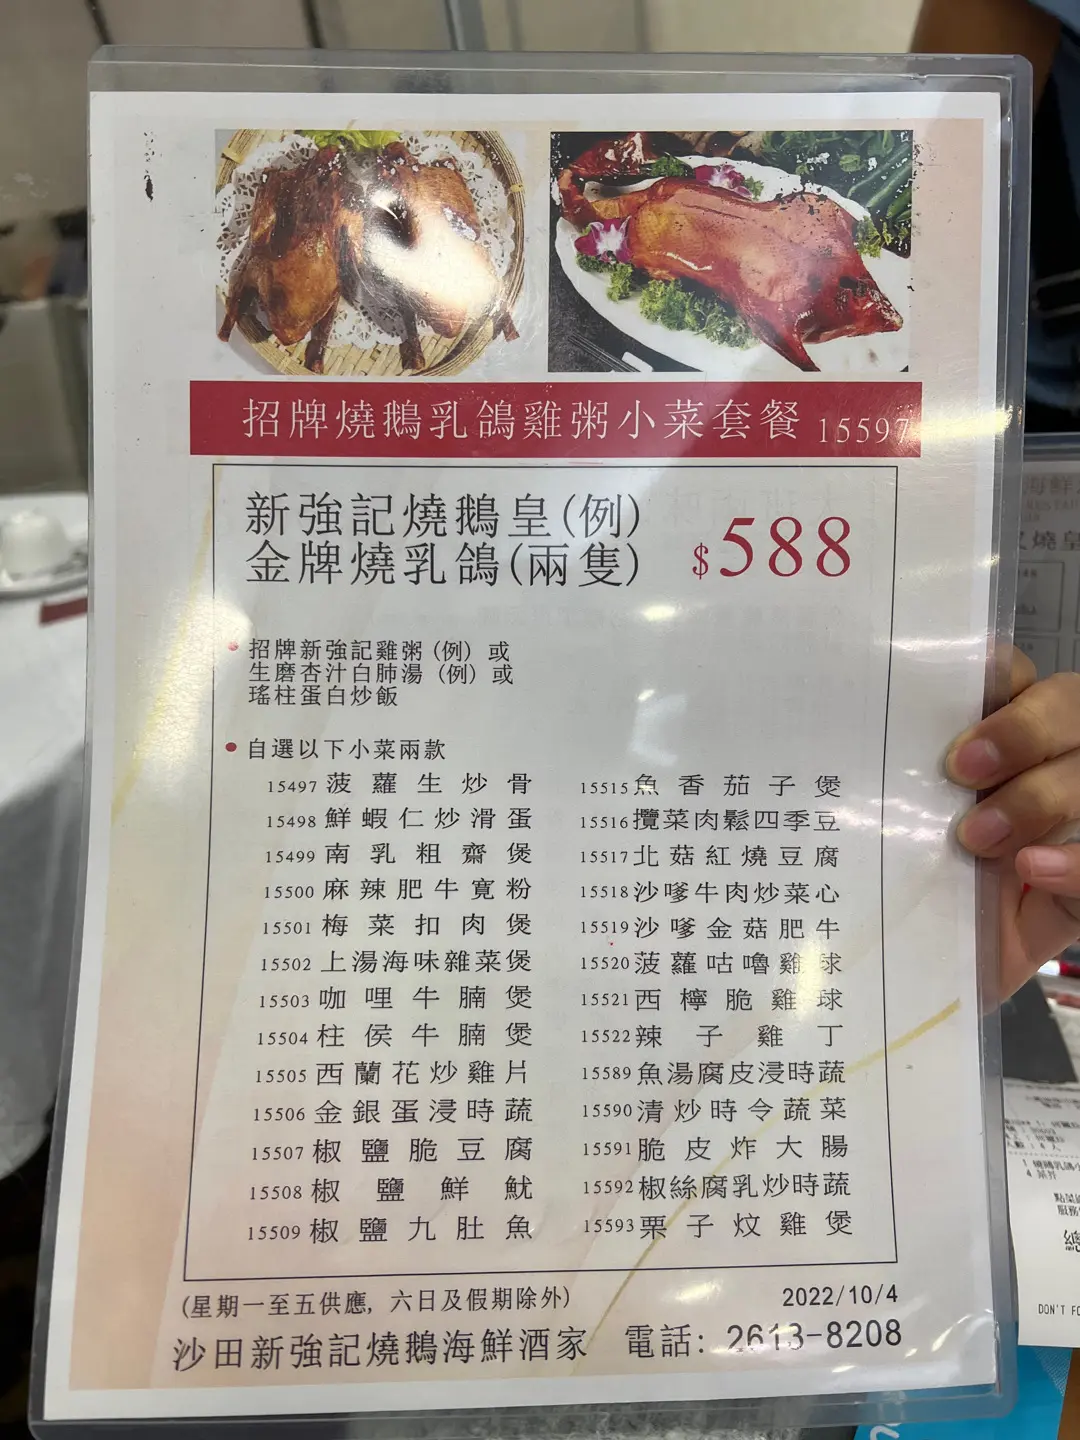 招牌燒鵝乳鴿雞粥小菜套餐 15597
新強記燒鵝皇(例)
金牌燒乳鴿(兩隻)
$588
招牌新強記雞粥 (例) 或
生磨杏汁白肺湯 (例) 或
瑤柱蛋白炒飯
自選以下小菜兩款
15497 菠蘿生炒骨
15498 鮮蝦仁炒滑蛋
15499 南乳粗齋煲
15500 麻辣肥牛寬粉
15501 梅菜扣肉煲
15502 上湯海味雜菜煲
15503 咖哩牛腩煲
15504 柱侯牛腩煲
15505 西蘭花炒雞片
15506 金銀蛋浸時蔬
15507 椒鹽脆豆腐
15508 椒鹽鮮魷
15509 椒鹽九肚魚
15515 魚香茄子煲
15516 攬菜肉鬆四季豆
15517 北菇紅燒豆腐
15518 沙嗲牛肉炒菜心
15519 沙嗲金菇肥牛
15520 菠蘿咕嚕雞球
15521 西檸脆雞球
15522 辣子雞丁
15589 魚湯腐皮浸時蔬
15590 清炒時令蔬菜
15591 脆皮炸大腸
15592 椒絲腐乳炒時蔬
15593 栗子炆雞煲
(星期一至五供應, 六日及假期除外)
2022/10/4
沙田新強記燒鵝海鮮酒家 電話: 2613-8208
海鮮
燒皇
DON'T